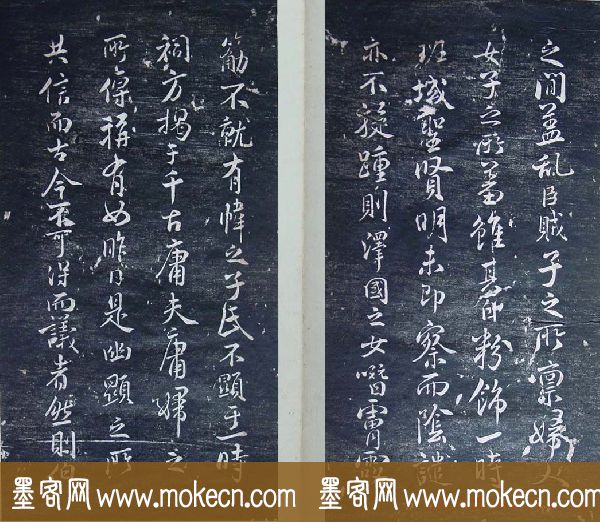 之間蓋亂臣賊子之所懍婦人
女子之所蓄雖甚即粉飾一時
班域聖賢明未即察而陰譴
亦不旋踵則澤國之女
筯不就有幃之子氏不顯于一時
祠方揭于千古庸夫庸婦之
所傳稱有如昨日是幽顯之所
共信而古今不可得而議者然則
墨客网 www.mokecn.com 墨客网 www.mokecn.com